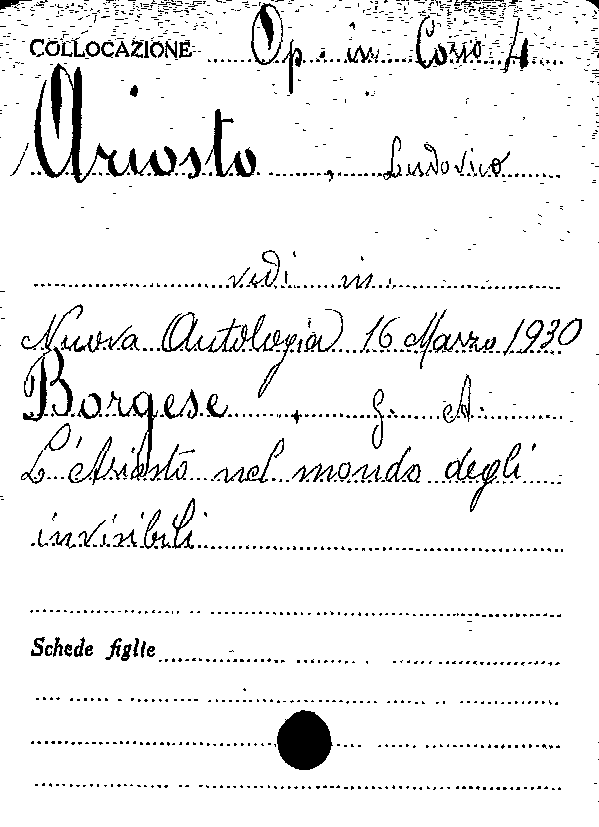 COLLOCAZIONE Op. in Corso 4
Ariosto, Ludovico
vedi in:
Nuova Antologia 16 Marzo 1930
Borgese, G. A.
L'Ariosto nel mondo degli
invisibili
Schede figlie